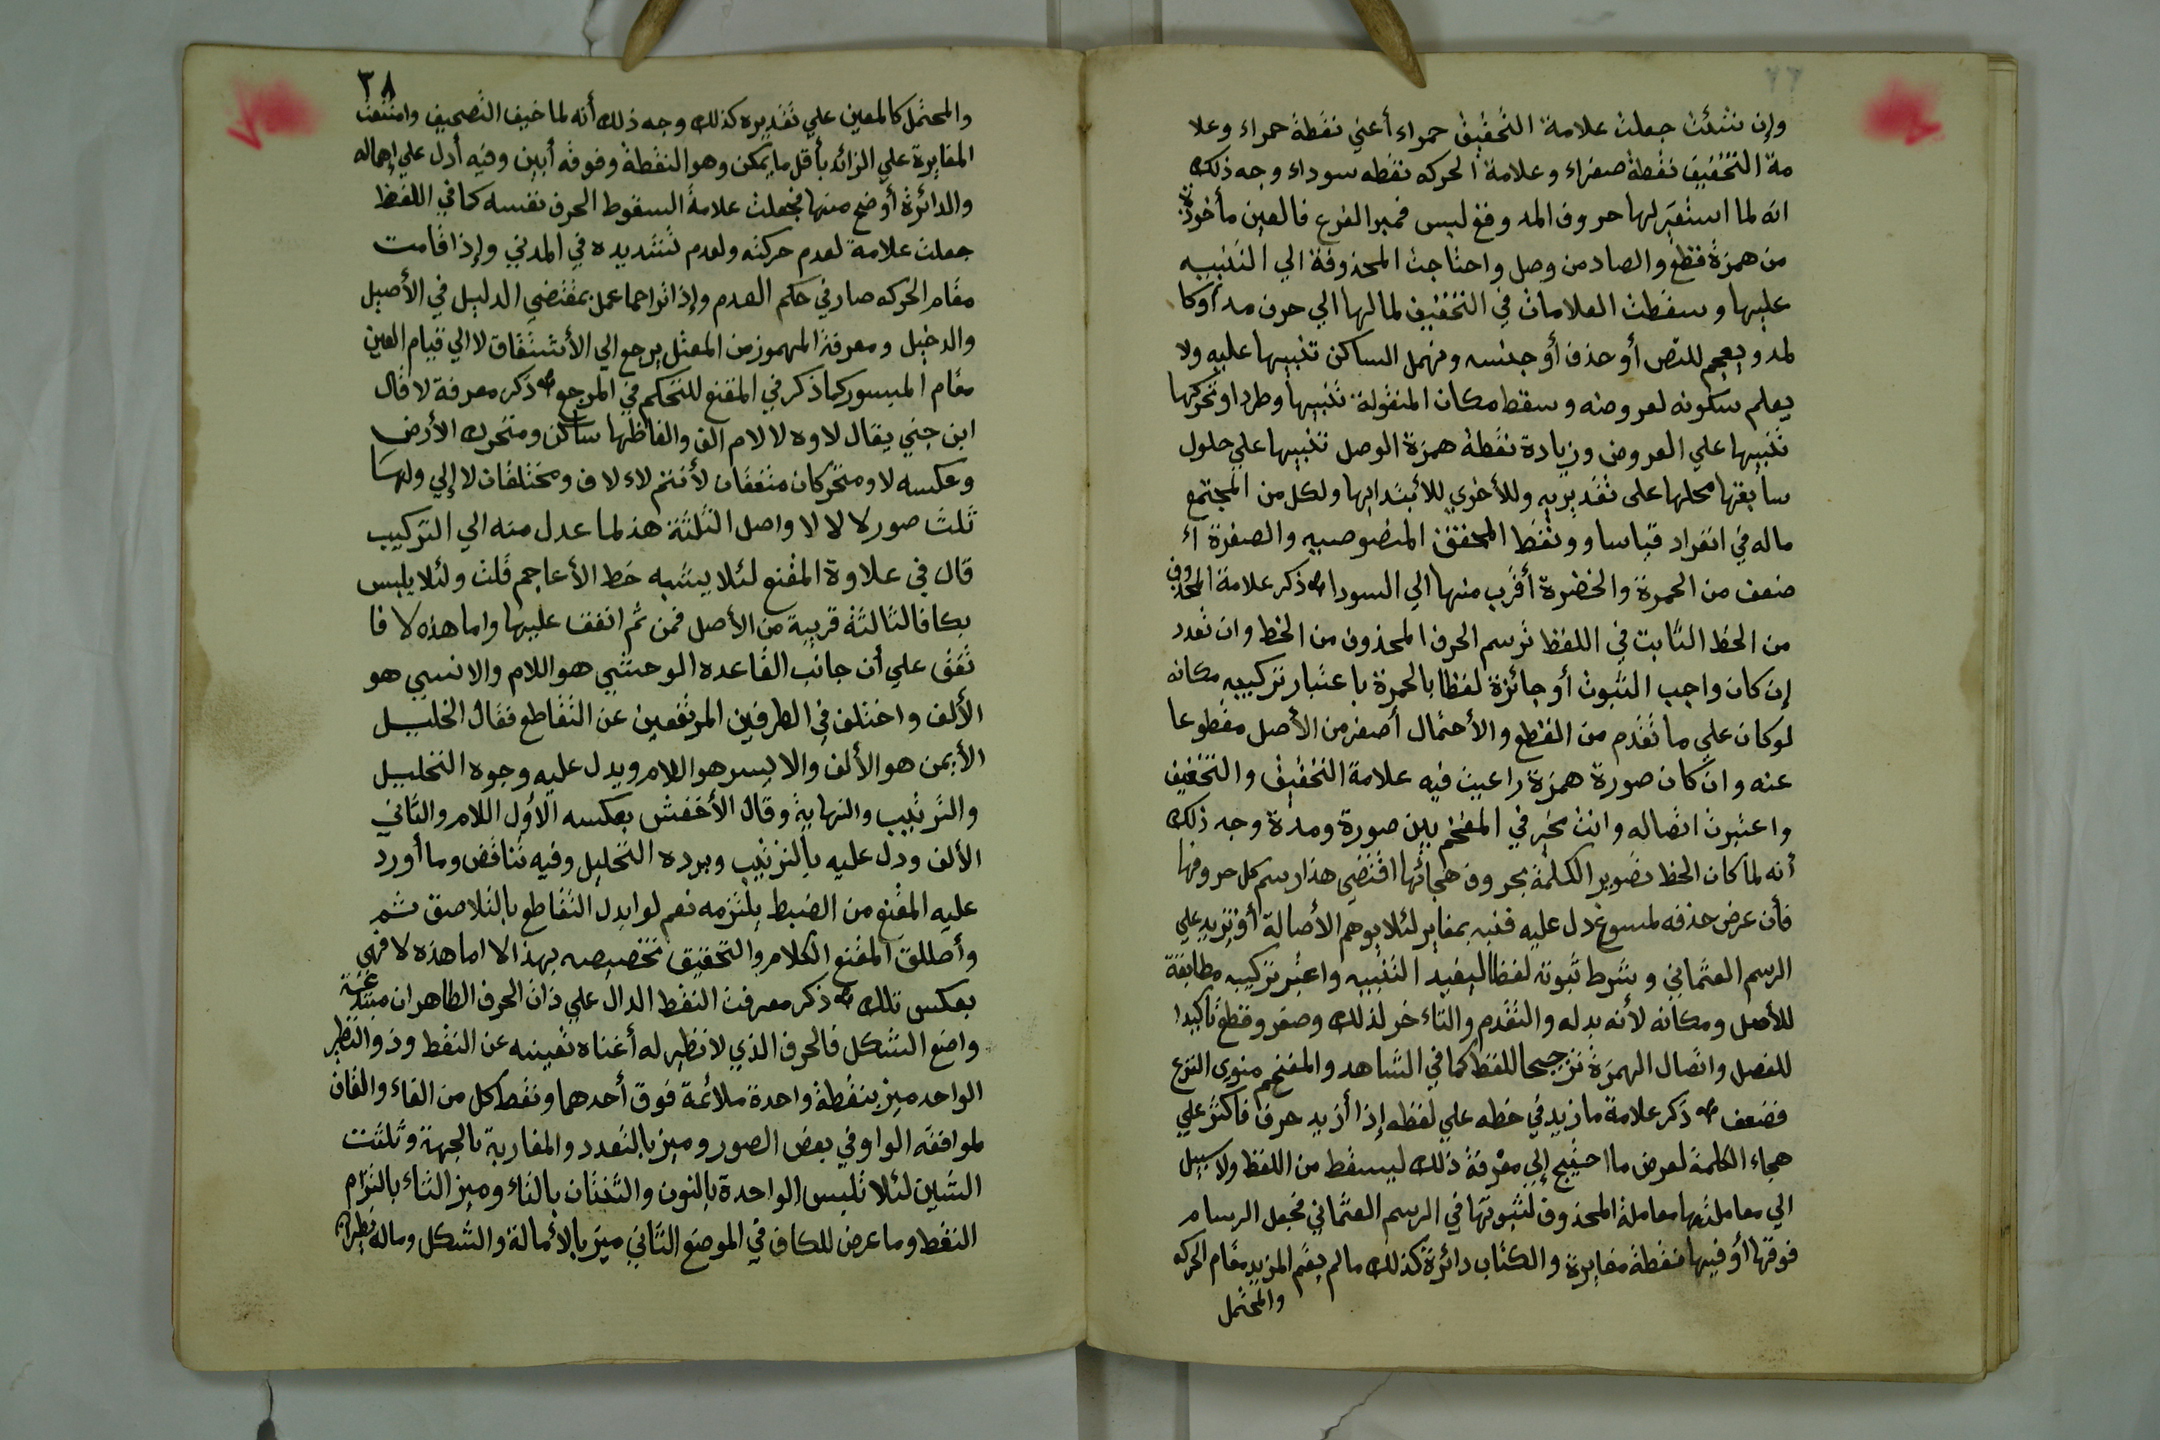 وإن شئت جعلت علامة التحقيق حمراء أعني نقطة حمراء وعلا
مة التخفيف نقطة صفراء وعلامة الحركه نقطه سوداء وجه ذلك
انه لما استغير لها حروف المد وفع ليس فميرا لفرع فالعين مأخوذة
من همزة قطع والصاد من وصل واحتاجت المحذوفة الي التنبيه
عليها وسقطت العلامات في التخفيف لمالها الي حرف مد أوكا
لمد ويعجم للنص أو حذف أو جنسه ومهمل الساكن تنبيها عليه ولا
يعلم سكونه لعروضه وسقط مكان المنقولة تنبيها وطردا وتحركها
تنبيها علي العروض وزيادة نقطة همزة الوصل تنبيها علي حلول
سابقتها محلها على تقديريه وللأخري للأبتدايها ولكل من المجتمع
ماله في انفراد قياسا وونقط المحقق المنصوصيه والصفرة أ
ضعف من الحمرة والخضرة أقرب منها الي السودا ص ذكر علامة المحذوف
من الخط الثابت في اللفظ ترسم الحرف المحذوف من الخط وان تعدد
إن كان واجب الثبوت أو جائزة لفظا بالحمرة باعتبار تركيبه مكانه
لوكان علي ما تقدم من القطع والأحتمال أصغر من الأصل مقطوعا
عنه وان كان صورة همزة راعيت فيه علامة التحقيق والتخفيف
واعتبرت اتصاله وانت مخير في المفخم بين صورة ومدة وجه ذلك
أنه لما كان الخط تصوير الكلمة بحروف هجائها اقتضي هذا رسم كل حروفها
فأن عرض حذفه لمسوغ دل عليه فنبه بمغاير لئلا يوهم الأصالة أو تزيد علي
الرسم العثماني وشرط ثبوته لفظا ليفيد التنبيه واعتبر تركيبه مطابقة
للأصل ومكانه لأنه بدله والتقدم والتاءخر لذلك وصغر وقطع تأكيدا
للفصل واتصال الهمزة ترجيحا للفظ كما في الشاهد والمفخم منوي الفرع
فضعف ص ذكر علامة ما زيد في خطه علي لفظه إذا أزيد حرف فاكثر علي
هجاء الكلمة لعرض ما احتيج إلي معرفة ذلك ليسقط من اللفظ ولا سبيل
الي معاملتها معاملة المحذوف لثبوتها في الرسم العثماني فجعل الرسام
فوقها أو فيها نقطة مغايرة والكتاب دائرة كذلك ما لم يقم المزيد مقام الحركه
والمحتمل
٣٨
والمحتمل كالمعين علي تقديره كذلك وجه ذلك أنه لما خيف التصحيف وامتنعت
المغايرة علي الزائد بأقل ما يمكن وهو النقطة وفوقه أبين وفيه أدل علي إهماله
والدائرة أوضح منها فجعلت علامة السقوط الحرف نفسه كما في اللفظ
جعلت علامة لعدم حركته ولعدم تشديده في المدني وإذا قامت
مقام الحركه صار في حكم العدم وإذا تراحما عمل بمقتضي الدليل في الأصيل
والدخيل ومعرفة المهموز من المعتل يرجع الي الأشتقاق لا الي قيام العين
مقام الميسور كما ذكر في المقنع للتحكم في المرجع ص ذكر معرفة لا قال
ابن جني يقال لاوه لا لام ألف والفاظها ساكن ومتحرك الأرض
وعكسه لا ومتحركان متفقان لأنتم لاء لاف ومختلفان لا إلي ولها
ثلث صور لا لا لا واصل الثلثة هذ لما عدل منه الي التركيب
قال في علاوة المقنع لئلا يشبه خط الأعاجم قلت ولئلا يلبس
بكا فالثالثة قريبة من الأصل فمن ثم اتفق عليها واما هذه لا فا
تفق علي أن جانب القاعده الوحشي هو اللام والانسي هو
الألف واختلف في الطرفين المرتفعين عن التقاطع فقال الخليل
الأيمن هو الألف والايسر هو اللام ويدل عليه وجوه التخليل
والترتيب والنهاية وقال الأخفش بعكسه الأول اللام والثاني
الألف ودل عليه بالترتيب ويرده التخليل وفيه تناقض وما أورد
عليه المقنع من الضبط يلتزمه نعم لو ابدل التقاطع بالتلاصق نتم
وأطلق المقنع الكلام والتحقيق تخصيصه بهذا لا اما هذه لا فهي
بعكس تلك ص ذكر معرفت النقط الدال علي ذات الحرف الظاهر ان مبتدعة
واضع الشكل فالحرف الذي لا نظير له أغناه تعيينه عن النقط وذو النظير
الواحد ميز بنقطة واحدة ملائمة فوق أحدهما ونقط كل من الفاء والقاف
لموافقه الواو في بعض الصور وميز بالتعدد والمغاربة بالجهة وثلثت
الشين لئلا تلبس الواحدة بالنون والثنتان بالتاء وميز الثاء بالتزام
النقط وما عرض للكاف في الموضع الثاني ميز بالأمالة والشكل وماله نظيران